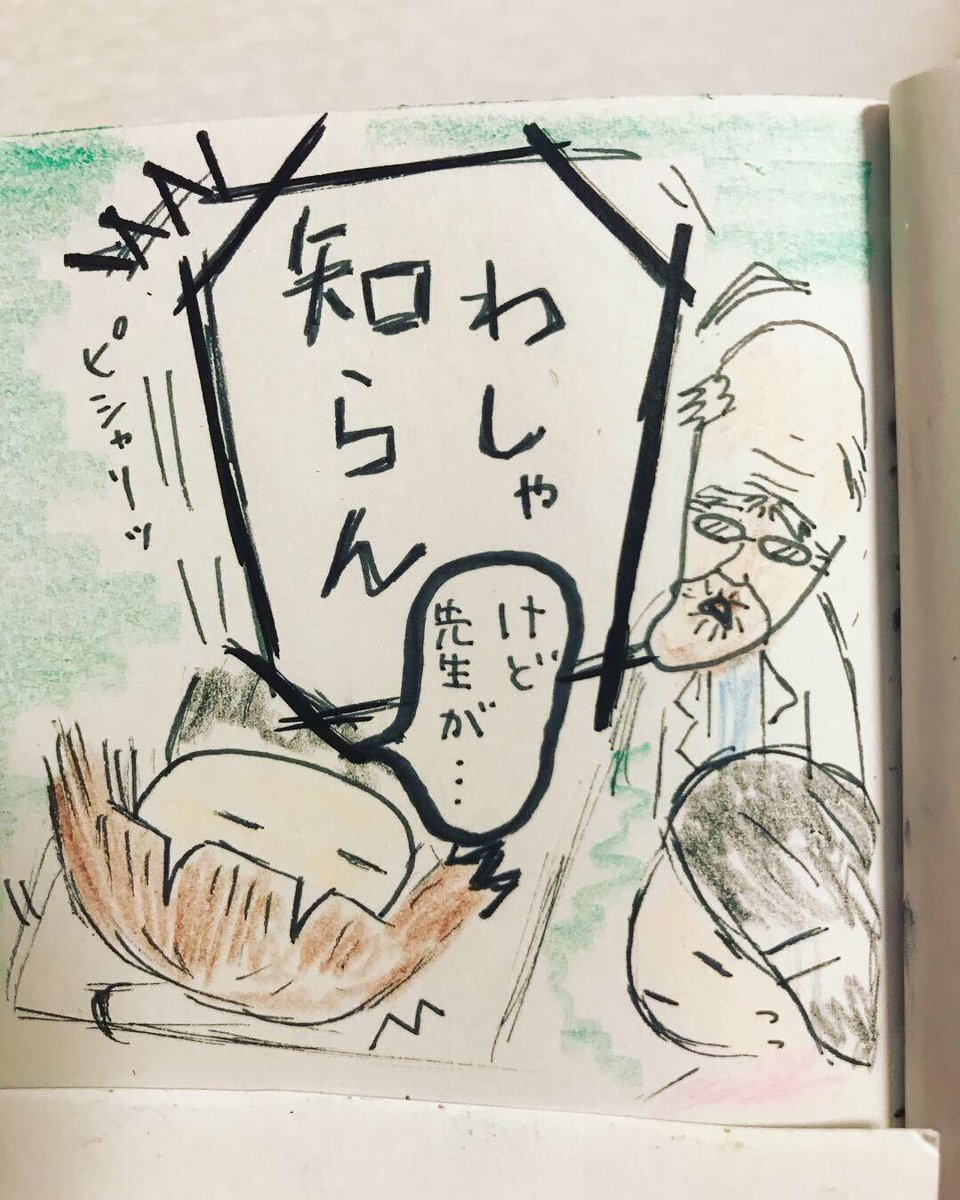 わしゃ
知らん
けど
先生が…
ピシャリーッ